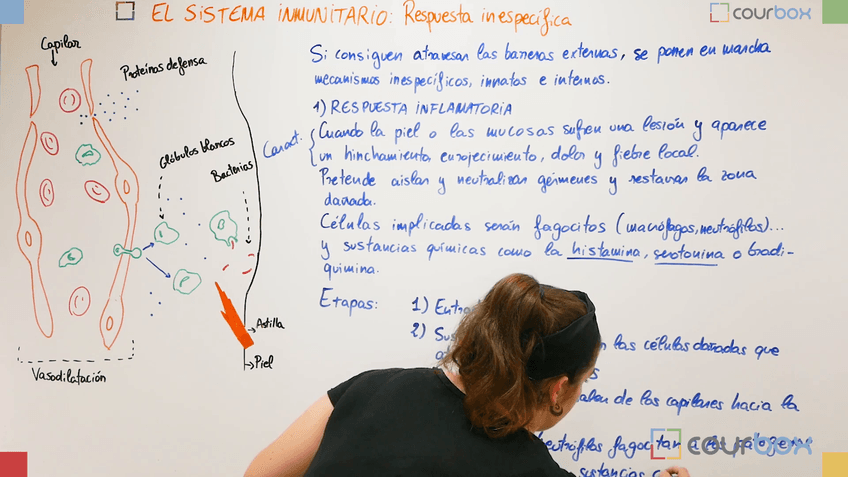 EL SISTEMA INMUNITARIO: Respuesta inespecífica
courbox
Capilar
Proteínas defensa
Glóbulos blancos
Bacterias
Astilla
Piel
Vasodilatación
Si consiguen atravesar las barreras externas, se ponen en marcha
mecanismos inespecíficos, innatos e internos.
1) RESPUESTA INFLAMATORIA
Caract.
Cuando la piel o las mucosas sufren una lesión y aparece
un hinchamiento, enrojecimiento, dolor y fiebre local.
Pretende aislar y neutralizar gérmenes y restaurar la zona
dañada.
Células implicadas serán fagocitos (macrófagos, neutrófilos)...
y sustancias químicas como la histamina, serotonina o bradi-
quimina.
Etapas:
1)
2)
las células dañadas que
de los capilares hacia la
neutrófilos fagocitan a
sustancias
courbox